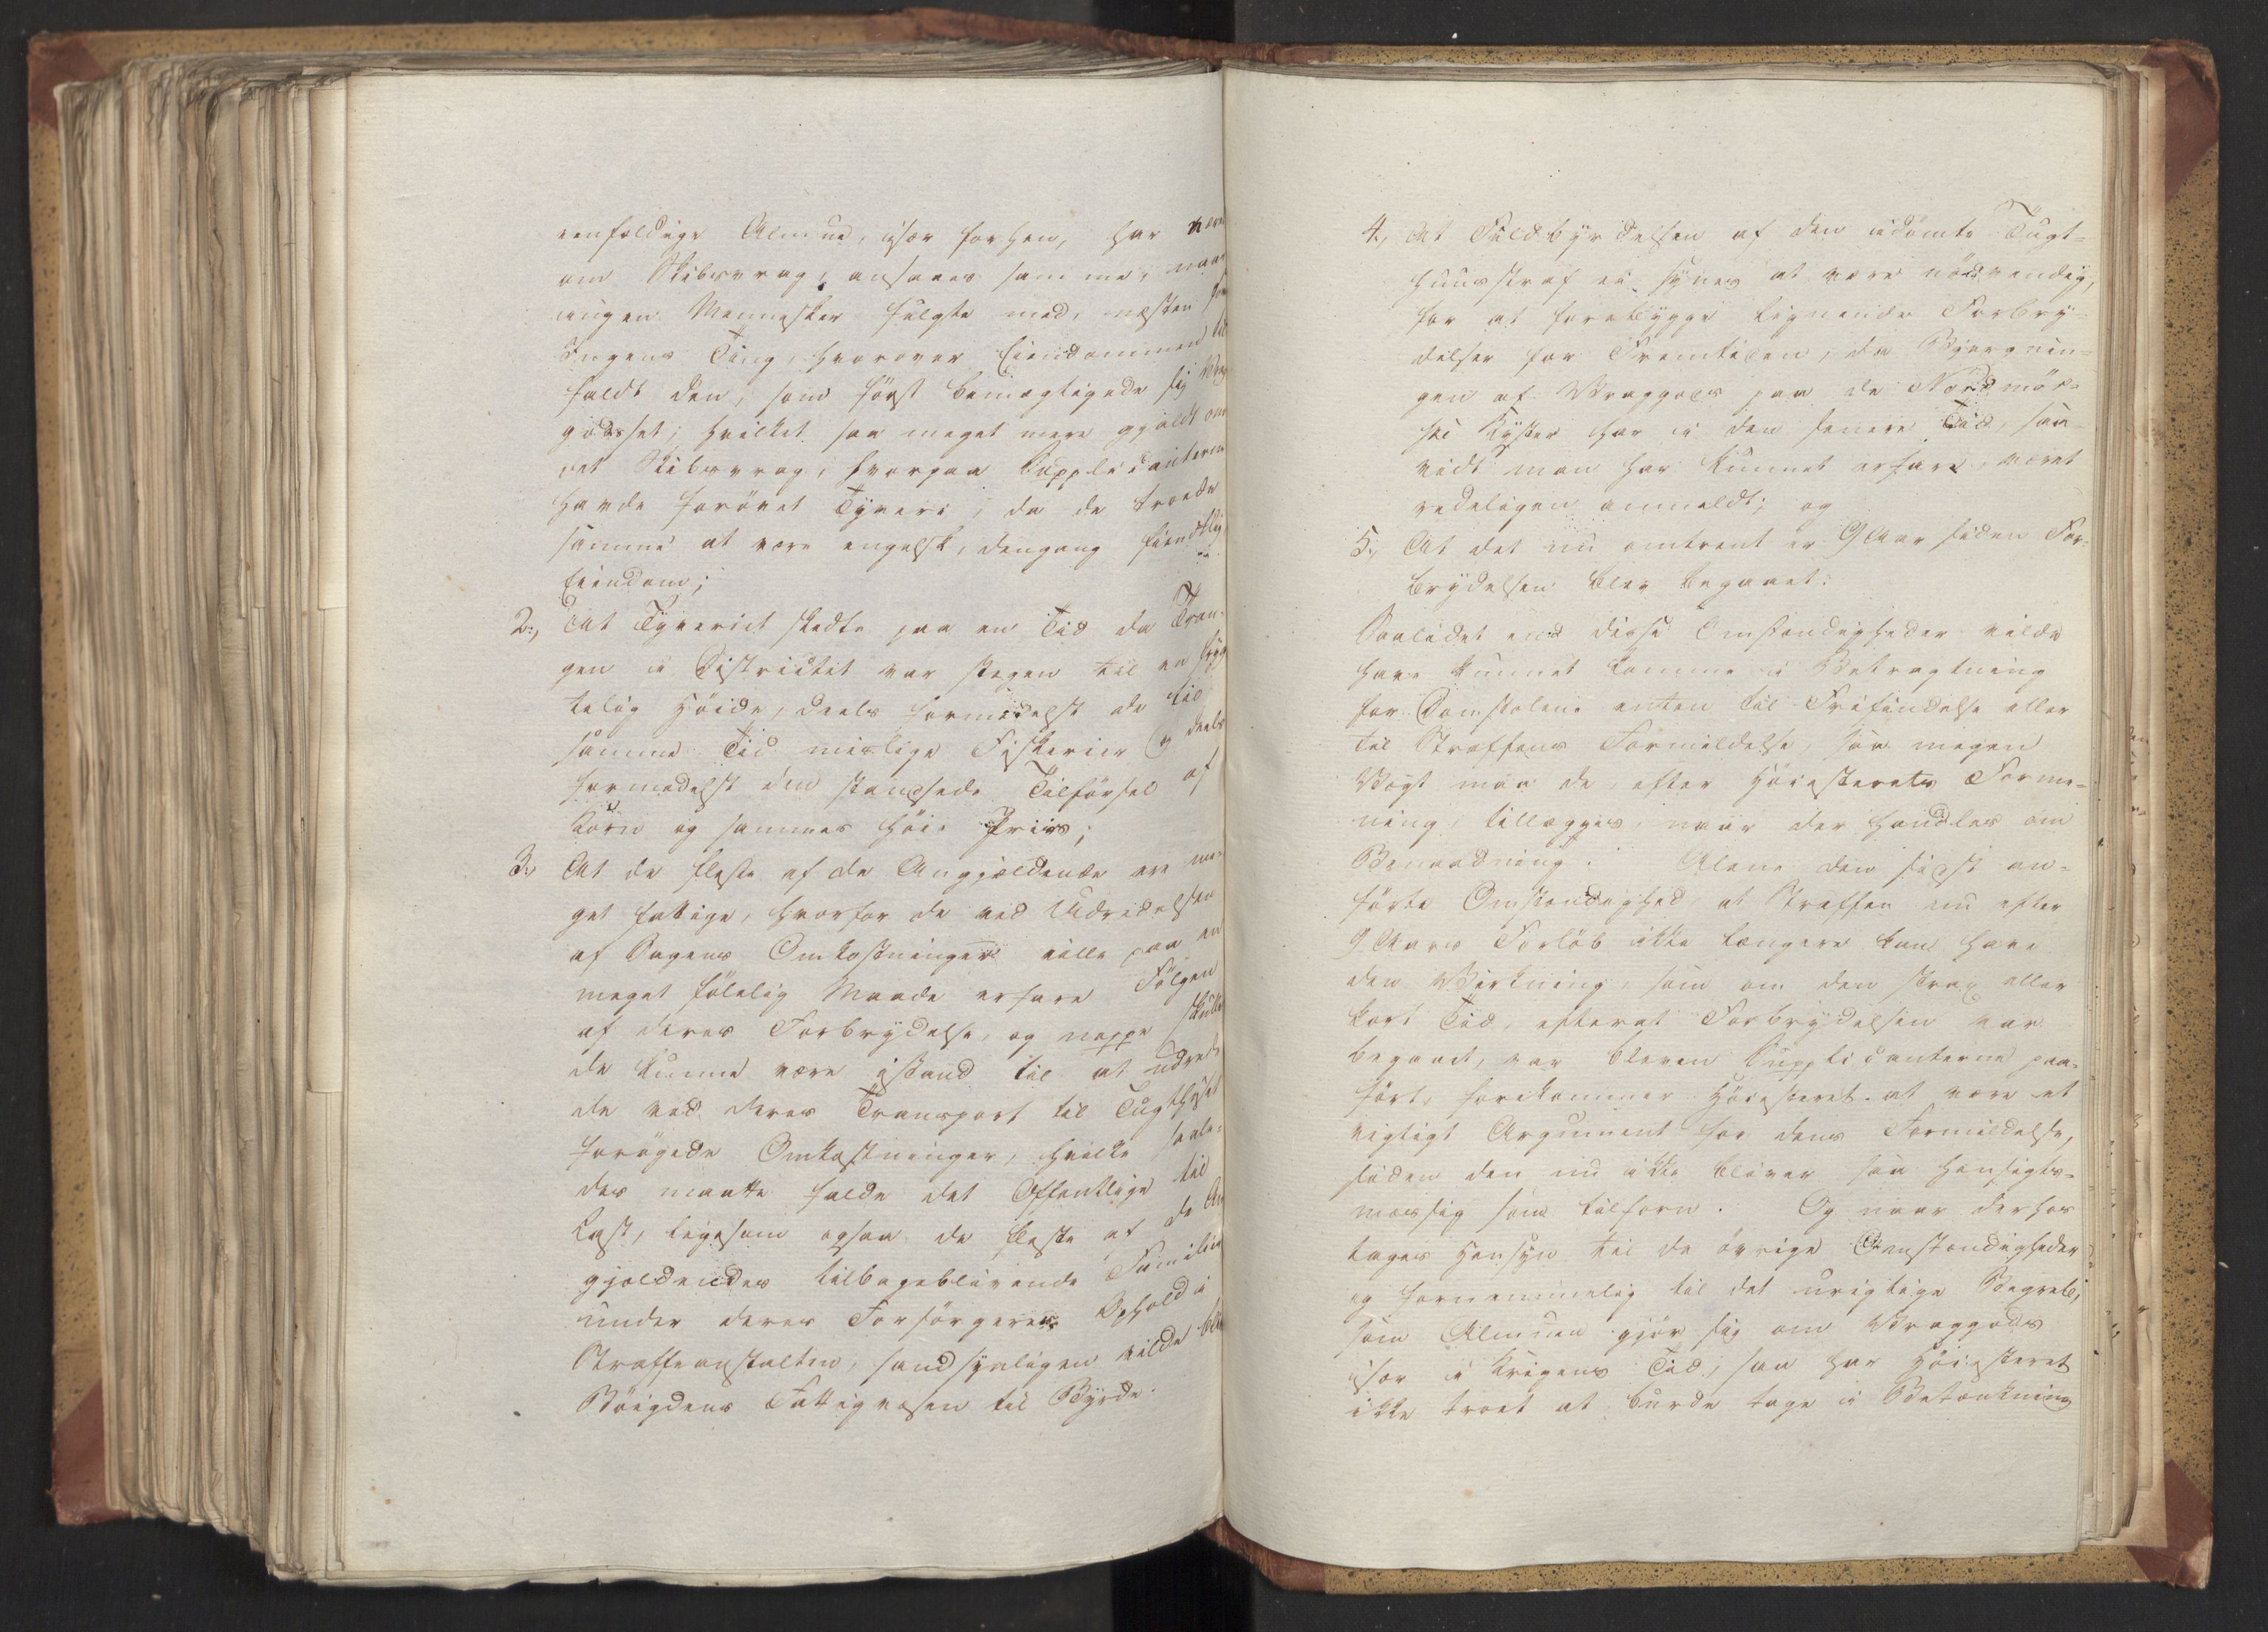 eenfoldige Almue, især forhen, har være
om Skibsvrag, ansaaes samme, naar
ingen Mennesker fulgte med, næsten som
Ingens Ting, hvorover Eiendommen til
faldt den, som först bemægtigede sig Vrag
godset; hvilket saa meget mere gjaldt om
det Skibsvrag, hvorpaa Supplicanterne
havde forövet Tyveri, da de troede
samme at være engelsk, dengang fiendtlig
Eiendom;
2, At Tyveriet skedte paa en Tid da Tran-
gen i Districtet var stegen til en fryg
telig Höide, deels formedelst de til
samme Tid mislige Fiskerier og deels
formedelst den standsede Tilförsel af
Korn og sammes höie Priis;
3, At de fleste af de Angjældende ere me-
get fattige, hvorfor de ved Udredelsen
af Sagens Omkostninger ville paa en
meget fölelig Maade erfare Fölgen
af deres Forbrydelse, og neppe skulle
de kunne være istand til at udrede
de ved deres Transport til Tugthuset
forögede Omkostninger, hvilke saale-
des maatte falde det Offentlige til
Last, ligesom ogsaa de fleste af de An
gjældendes tilbageblivende Familier
under deres Forsörgeres Ophold i
Straffeanstalten, sandsynligen vilde blive
Böigdens Fattigvæsen til Byrde.
4, At Fuldbyrdelsen af den idömte Tugt-
huusstraf ei synes at være nödvendig,
for at forebygge lignende Forbry-
delser for Fremtiden, da Bjergnin-
gen af Vraggods paa de Nordmör-
ske Kyster har i den senere Tid, saa-
vidt man har kunnet erfare, været
redeligen anmeldt; og
5, At det nu omtrent er 9 Aar siden For-
brydelsen blev begaaet.
Saalidet end disse Omstændigheder vilde
have kunnet komme i Betragtning
for Domstolene enten til Frifindelse eller
til Straffens Formildelse, saa megen
Vægt maa de, efter Höiesterets Forme-
ning, tillægges, naar der handles om
Benaadning. Alene den sidst an-
förte Omstændighed at Straffen nu efter
9 Aars Forlöb ikke længere kan have
den Virkning, som om den strax eller
kort Tid, efterat Forbrydelsen var
begaaet, var bleven Supplicanterne paa-
fört, forekommer Höiesteret at være et
vigtigt Argument for dens Formildelse,
siden den nu ikke bliver saa hensigts-
mæssig som tilforn. Og naar derhos
tages Hensyn til de övrige Omstændigheder
og fornemmelig til det urigtige Begreb,
som Almuen gjör sig om Vraggods
især i Krigens Tid, saa har Höiesteret
ikke troet at burde tage i Betænkning